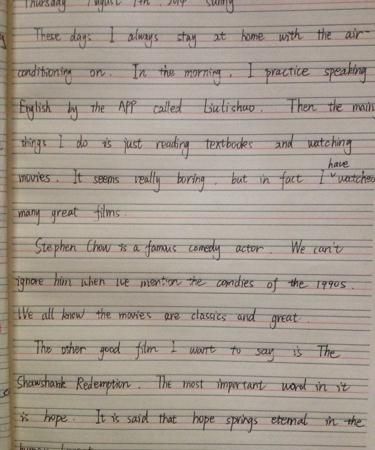 Thursday August 7th, 2014 sunny
These days I always stay at home with the air-
conditioning on. In the morning, I practice speaking
English by the APP called Liulishuo. Then the main
things I do is just reading textbooks and watching
movies. It seems really boring, but in fact I have watched
many great films.
Stephen Chow is a famous comedy actor. We can't
ignore him when we mention the comdies of the 1990s.
We all know the movies are classics and great.
The other good film I want to say is The
Shawshank Redemption. The most important word in it
is hope. It is said that hope springs eternal in the
human